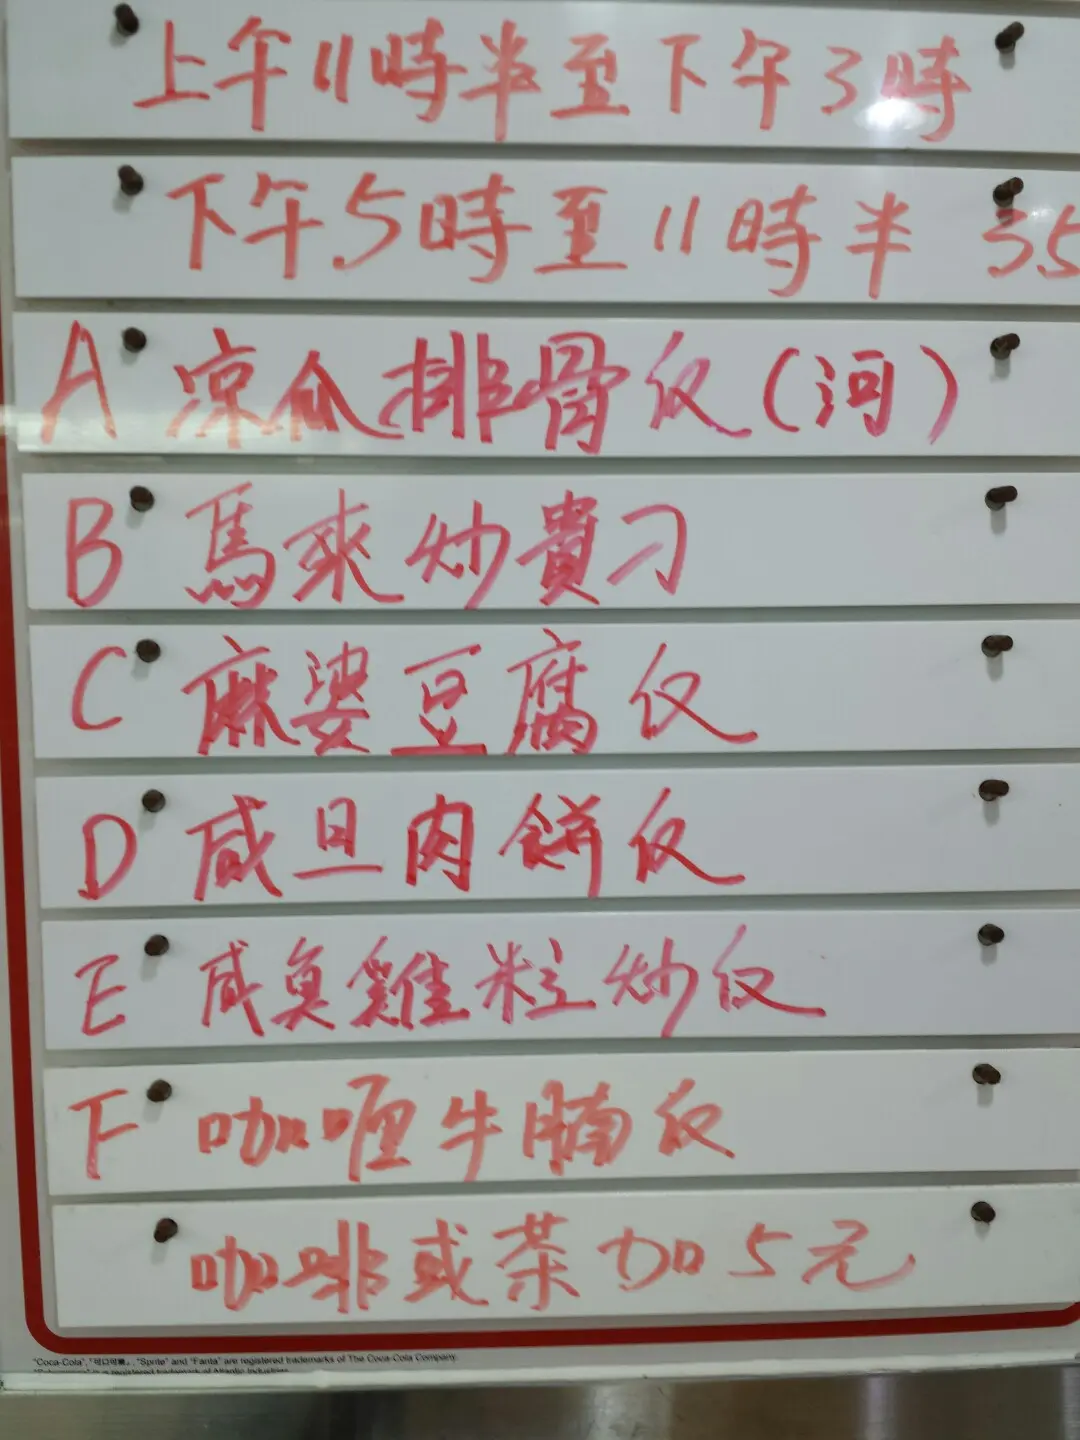 上午11時半至下午3時
下午5時至11時半 35
A 涼瓜排骨仅(河)
B 馬來炒貴刁
C 麻婆豆腐仅
D 咸旦肉餅仅
E 咸魚雞粒炒仅
F 咖喱牛腩仅
咖啡或茶加5元
"Coca-Cola", "可口可樂", "Sprite" and "Fanta" are registered trademarks of The Coca-Cola Company.